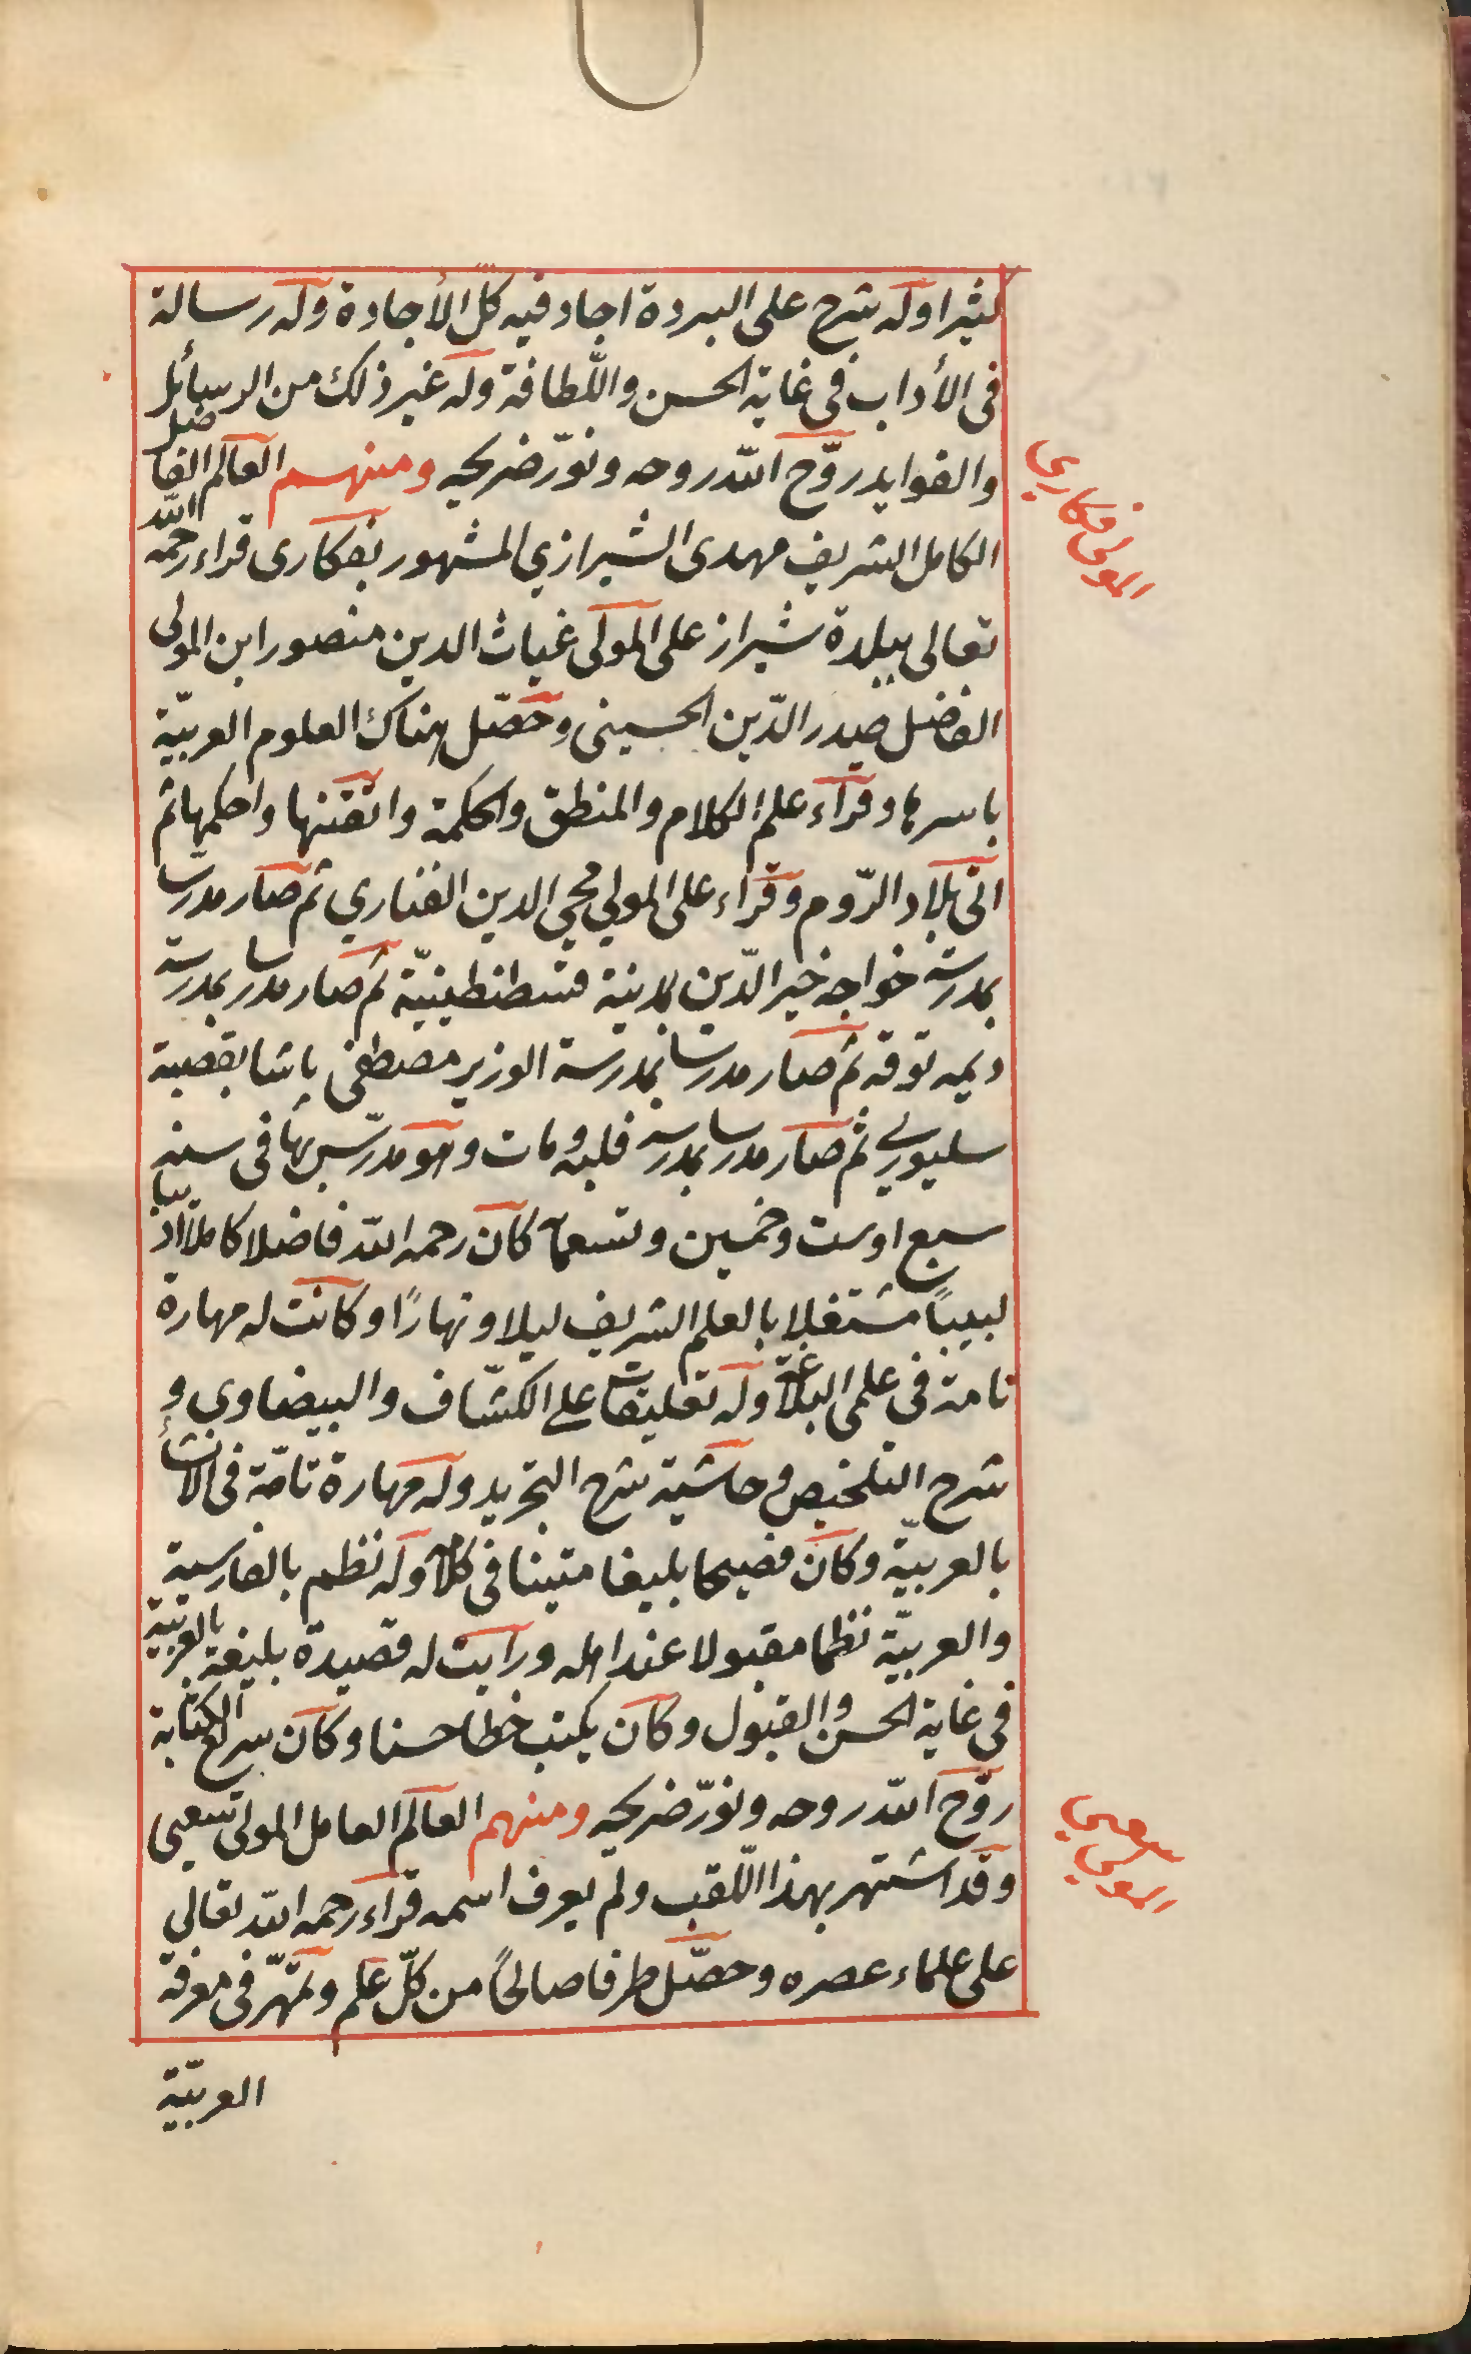 كثيرا وله شرح على البردة اجاد فيه كلّ الأجادة وله رسالة
فى الأداب فى غاية الحسن واللّطافة وله غير ذلك من الرسائل
والفوايد روّح اللّه روحه ونوّر ضريحه ومنهم العالم الفاضل
المولى فكاري
الكامل الشريف مهدى الشيرازي المشهور بفكارى قراء رحمه اللّه
تعالى ببلدة شيراز على المولى غياث الدين منصور ابن المولى
الفاضل صدر الدّين الحسينى وحصّل هناك العلوم العربيّة
باسرها وقراء علم الكلام والمنطق والحكمة واتقنها واحكمها ثم
اتى بلاد الرّوم وقراء على المولي محيي الدين الفناري ثم صار مدرسا
بمدرسة خواجه خير الدّين بمدينة قسطنطينيّة ثم صار مدرسا بمدرسة
ديمه توقه ثم صار مدرسا بمدرسة الوزير مصطفى پاشا بقصبة
سليوري ثم صار مدرسا بمدرسة فلبه ومات وهو مدرّس بها فى سنه
سبع اوست وخمسين وتسعمائة كان رحمه اللّه فاضلا كاملا اديبا
لبيبًا مشتغلا بالعلم الشريف ليلا ونهارًا وكانت له مهارة
تامة في علمى البلاغة وله تعليقات على الكشّاف والبيضاوي و
شرح التلخيص وحاشية شرح التجريد وله مهارة تامّة فى الانشأ
بالعربيّة وكان فصيحا بليغا متينا فى كلامه وله نظم بالفارسية
والعربيّة نظما مقبولا عند اهله ورايت له قصيدة بليغة بالعربيّة
في غاية الحسن والقبول وكان يكتب خطا حسنا وكان سريع الكتابة
روّح اللّه روحه ونوّر ضريحه ومنهم العالم العامل المولى سعيى
المولى سعيي
وقد اشتهر بهذا اللّقب ولم يعرف اسمه قراء رحمه اللّه تعالي
على علماء عصره وحصّل طرفا صالحًا من كلّ علم وتمهّر فى معرفة
العربيّة